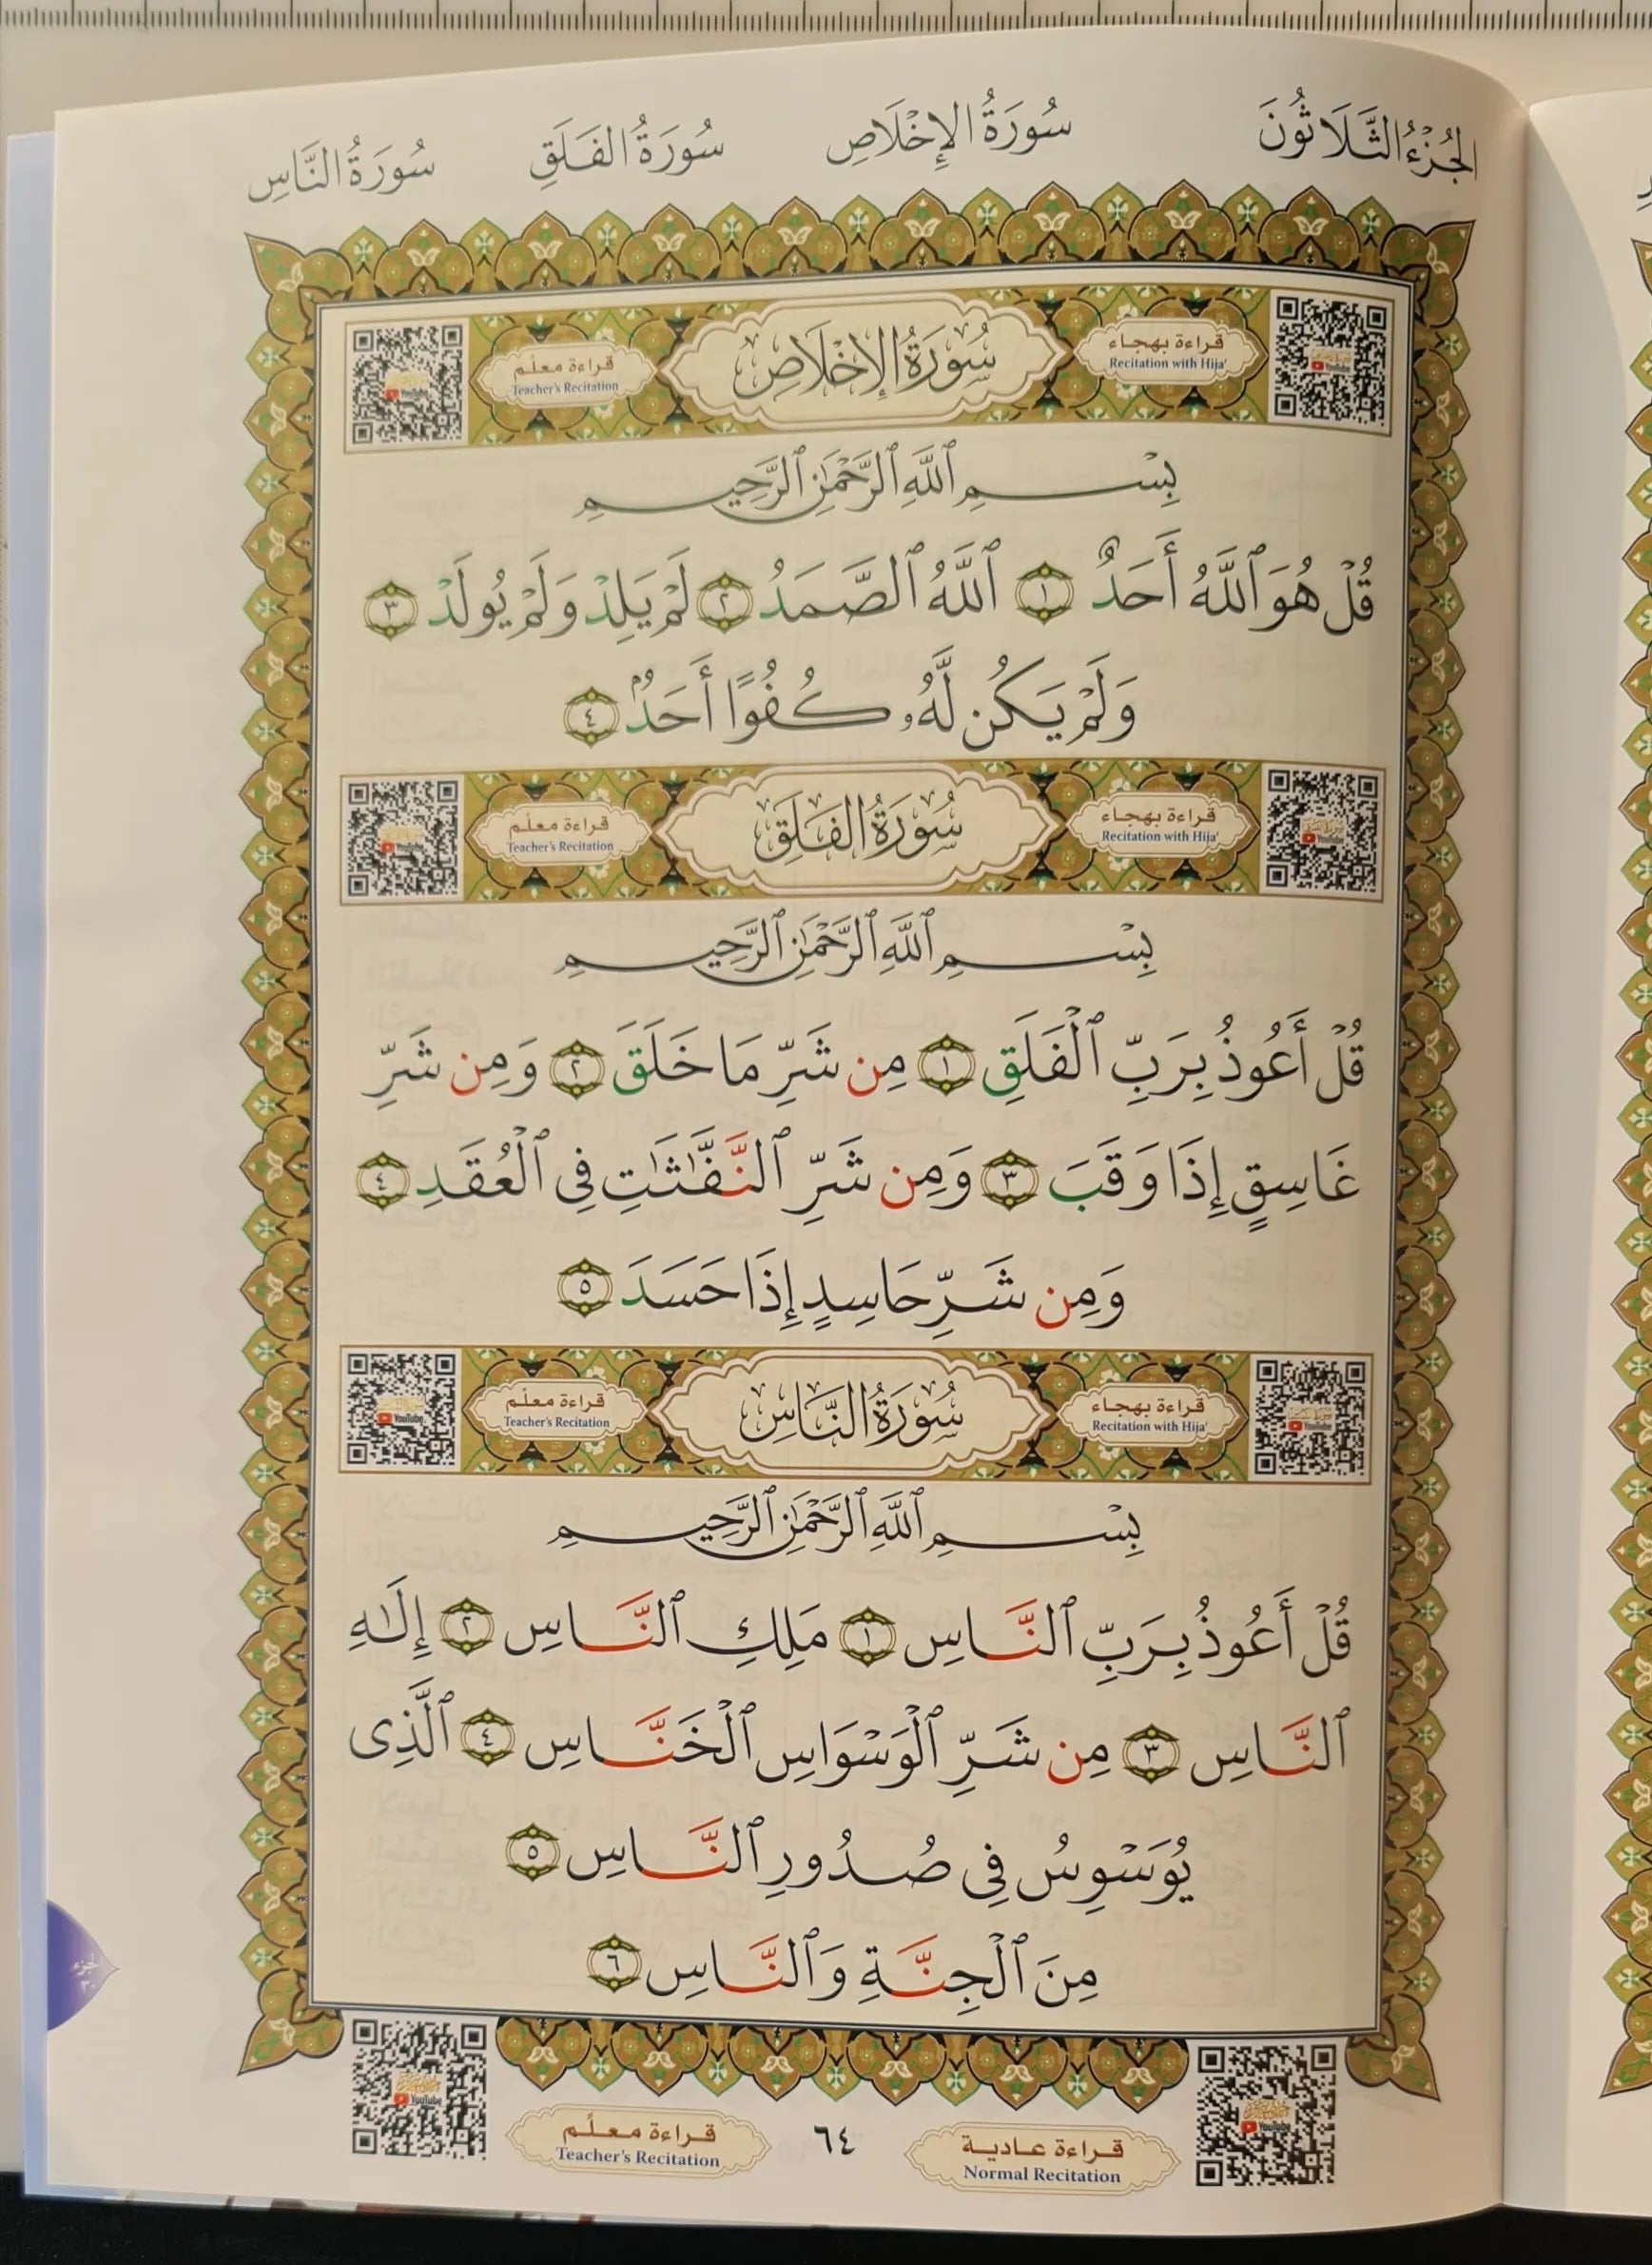 الجُزْءُ الثَّلَاثُونَ سُورَةُ الإِخْلَاصِ سُورَةُ الفَلَقِ سُورَةُ النَّاسِ
قراءة بهجاء
Recitation with Hija'
سُورَةُ الإِخْلَاصِ
قراءة معلّم
Teacher's Recitation
YouTube
YouTube
بِسْمِ ٱللَّهِ ٱلرَّحْمَٰنِ ٱلرَّحِيمِ
قُلْ هُوَ ٱللَّهُ أَحَدٌ ١ ٱللَّهُ ٱلصَّمَدُ ٢ لَمْ يَلِدْ وَلَمْ يُولَدْ ٣
وَلَمْ يَكُن لَّهُۥ كُفُوًا أَحَدٌۢ ٤
قراءة بهجاء
Recitation with Hija'
سُورَةُ الفَلَقِ
قراءة معلّم
Teacher's Recitation
YouTube
YouTube
بِسْمِ ٱللَّهِ ٱلرَّحْمَٰنِ ٱلرَّحِيمِ
قُلْ أَعُوذُ بِرَبِّ ٱلْفَلَقِ ١ مِن شَرِّ مَا خَلَقَ ٢ وَمِن شَرِّ
غَاسِقٍ إِذَا وَقَبَ ٣ وَمِن شَرِّ ٱلنَّفَّٰثَٰتِ فِى ٱلْعُقَدِ ٤
وَمِن شَرِّ حَاسِدٍ إِذَا حَسَدَ ٥
قراءة بهجاء
Recitation with Hija'
سُورَةُ النَّاسِ
قراءة معلّم
Teacher's Recitation
YouTube
YouTube
بِسْمِ ٱللَّهِ ٱلرَّحْمَٰنِ ٱلرَّحِيمِ
قُلْ أَعُوذُ بِرَبِّ ٱلنَّاسِ ١ مَلِكِ ٱلنَّاسِ ٢ إِلَٰهِ
ٱلنَّاسِ ٣ مِن شَرِّ ٱلْوَسْوَاسِ ٱلْخَنَّاسِ ٤ ٱلَّذِى
يُوَسْوِسُ فِى صُدُورِ ٱلنَّاسِ ٥
مِنَ ٱلْجِنَّةِ وَٱلنَّاسِ ٦
جزء
٣٠
YouTube
قراءة عادية
Normal Recitation
٦٤
قراءة معلّم
Teacher's Recitation
YouTube